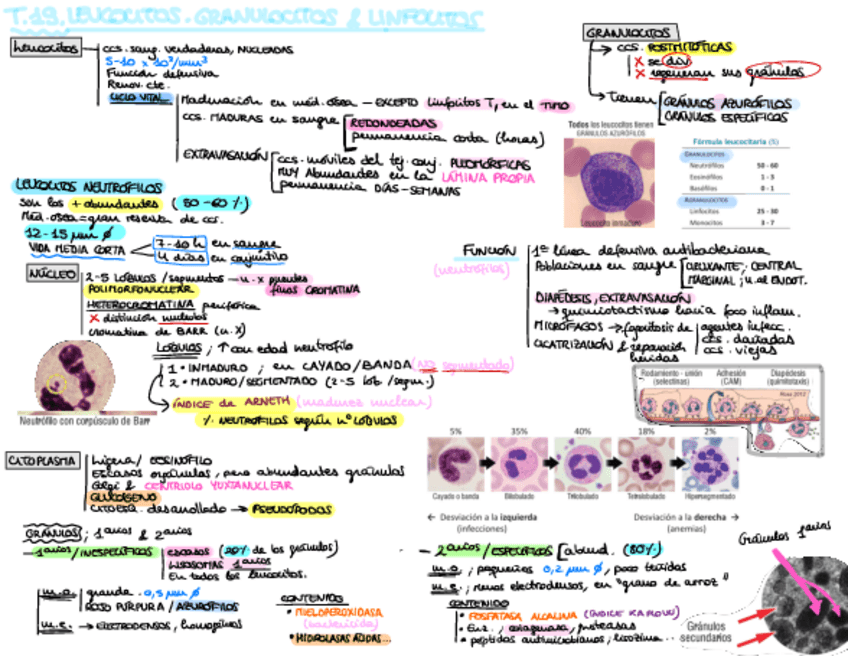 T.19. LEUCOCITOS. GRANULOCITOS & LINFOCITOS
Leucocitos
ccs. sang. verdaderas, NUCLEADAS
5-10 x 10³/mm³
Función defensiva
Renov. cte.
CICLO VITAL
Maduración en méd. ósea - EXCEPTO Linfocitos T, en el TIMO
ccs. MADURAS en sangre
REDONDEADAS
permanencia corta (horas)
EXTRAVASACIÓN
ccs. móviles del tej. conj. PLEOMÓRFICAS
MUY Abundantes en la LÁMINA PROPIA
permanencia DÍAS-SEMANAS
GRANULOCITOS
ccs. POSTMITÓTICAS
X se div
X regeneran sus gránulos
Tienen
GRÁNULOS AZURÓFILOS
GRÁNULOS ESPECÍFICOS
Todos los leucocitos tienen
GRÁNULOS AZURÓFILOS
Leucocito inmaduro
Fórmula leucocitaria (%)
GRANULOCITOS
Neutrófilos 50 - 60
Eosinófilos 1 - 3
Basófilos 0 - 1
AGRANULOCITOS
Linfocitos 25 - 30
Monocitos 3 - 7
LEUCOCITOS NEUTRÓFILOS
son los + abundantes (50-60%)
Méd. ósea = gran reserva de ccs.
12-15 µm Ø
VIDA MEDIA CORTA
7-10 h en sangre
4 días en conjuntivo
NÚCLEO
2-5 LOBULOS / segmentos - u. x puentes
finos CROMATINA
POLIMORFONUCLEAR
HETEROCROMATINA periférica
X distinción nucleolos
cromatina de BARR (u. X)
LOBULOS; ↑ con edad neutrófilo
1. INMADURO; en CAYADO/BANDA (NO segmentado)
2. MADURO/SEGMENTADO (2-5 lob/segm.)
ÍNDICE de ARNETH (madurez nuclear)
% NEUTRÓFILOS según nº LOBULOS
Neutrófilo con corpúsculo de Barr
FUNCIÓN
(neutrófilos)
1ª línea defensiva antibacteriana
Poblaciones en sangre
CIRCULANTE; CENTRAL
MARGINAL; u. al ENDOT.
DIAPÉDESIS, EXTRAVASACIÓN
→ quimiotactismo hacia foco inflam.
MICRÓFAGOS → fagocitosis de
agentes infecc.
ccs. dañadas
ccs. viejas
CICATRIZACIÓN & reparación
heridas
Rodamiento - unión
(selectinas)
Adhesión
(CAM)
Diapédesis
(quimiotaxis)
Ross 2012
5% 35% 40% 18% 2%
Cayado o banda Bilobulado Trilobulado Tetralobulado Hipersegmentado
← Desviación a la izquierda
(infecciones)
Desviación a la derecha →
(anemias)
CITOPLASMA
Ligera/ EOSINÓFILO
Escasos orgánulos, pero abundantes gránulos
Golgi & CENTRIOLO YUXTANUCLEAR
GLUCÓGENO
CITOESQ. desarrollado → PSEUDÓPODOS
GRÁNULOS; 1arios & 2arios
- 1arios/INESPECÍFICOS
escasos (20% de los gránulos)
LISOSOMAS 1arios
En todos los leucocitos.
m.o.
grande. 0,5 µm Ø
ROJO PÚRPURA / AZURÓFILOS
m.e. → ELECTRODENSOS, homogéneos
CONTENIDOS
• MIELOPEROXIDASA
(bactericida)
• HIDROLASAS ÁCIDAS...
- 2arios/ESPECÍFICOS [abund. (80%)
m.o.; pequeños 0,2 µm Ø, poco teñidos
m.e.; menos electrodensos, en "grano de arroz"
CONTENIDO
• FOSFATASA ALCALINA (ÍNDICE KAPLOW)
• Enz.; colagenasa, proteasas
• péptidos antimicrobianos; lisozima...
Gránulos 1arios
Gránulos
secundarios